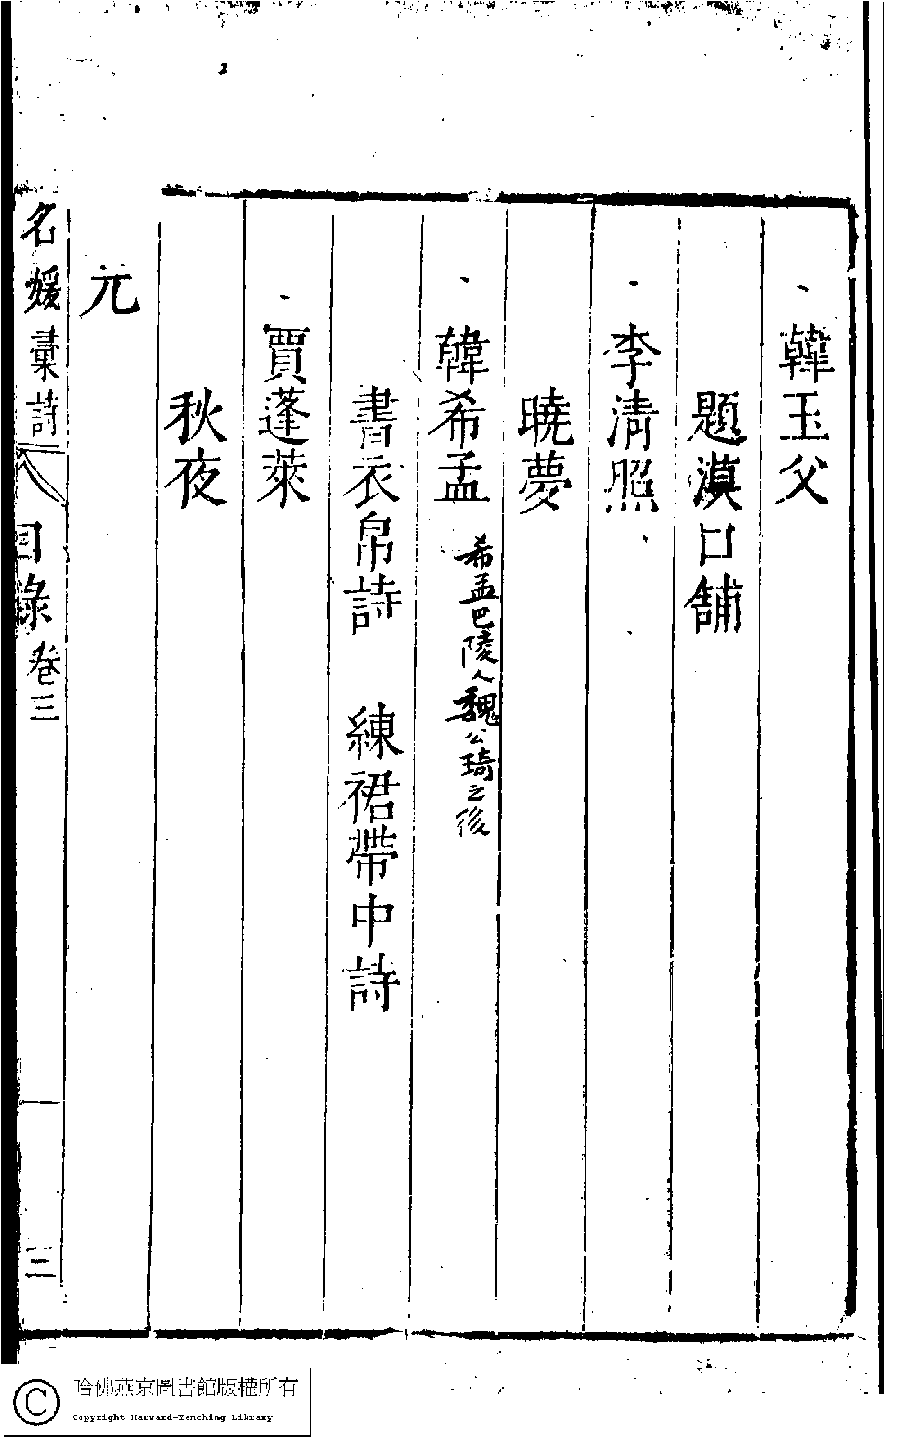 韓玉父
題漠口舖
李清照
曉夢
韓希孟 希孟巴陵人魏公琦之後
書衣帛詩 練裙帶中詩
賈蓬萊
秋夜
元
名媛彙詩 目錄 卷三 三
哈佛燕京圖書館版權所有
Copyright Harvard-Yenching Library